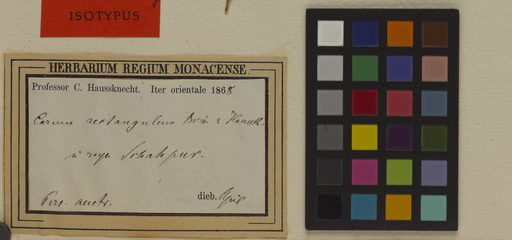 ISOTYPUS
HERBARIUM REGIUM MONACENSE.
Professor C. Haussknecht. Iter orientale 1868
Carum rectangulum Boiss & Haussk.
in regn Schahpur.
Pers. austr. dieb. April